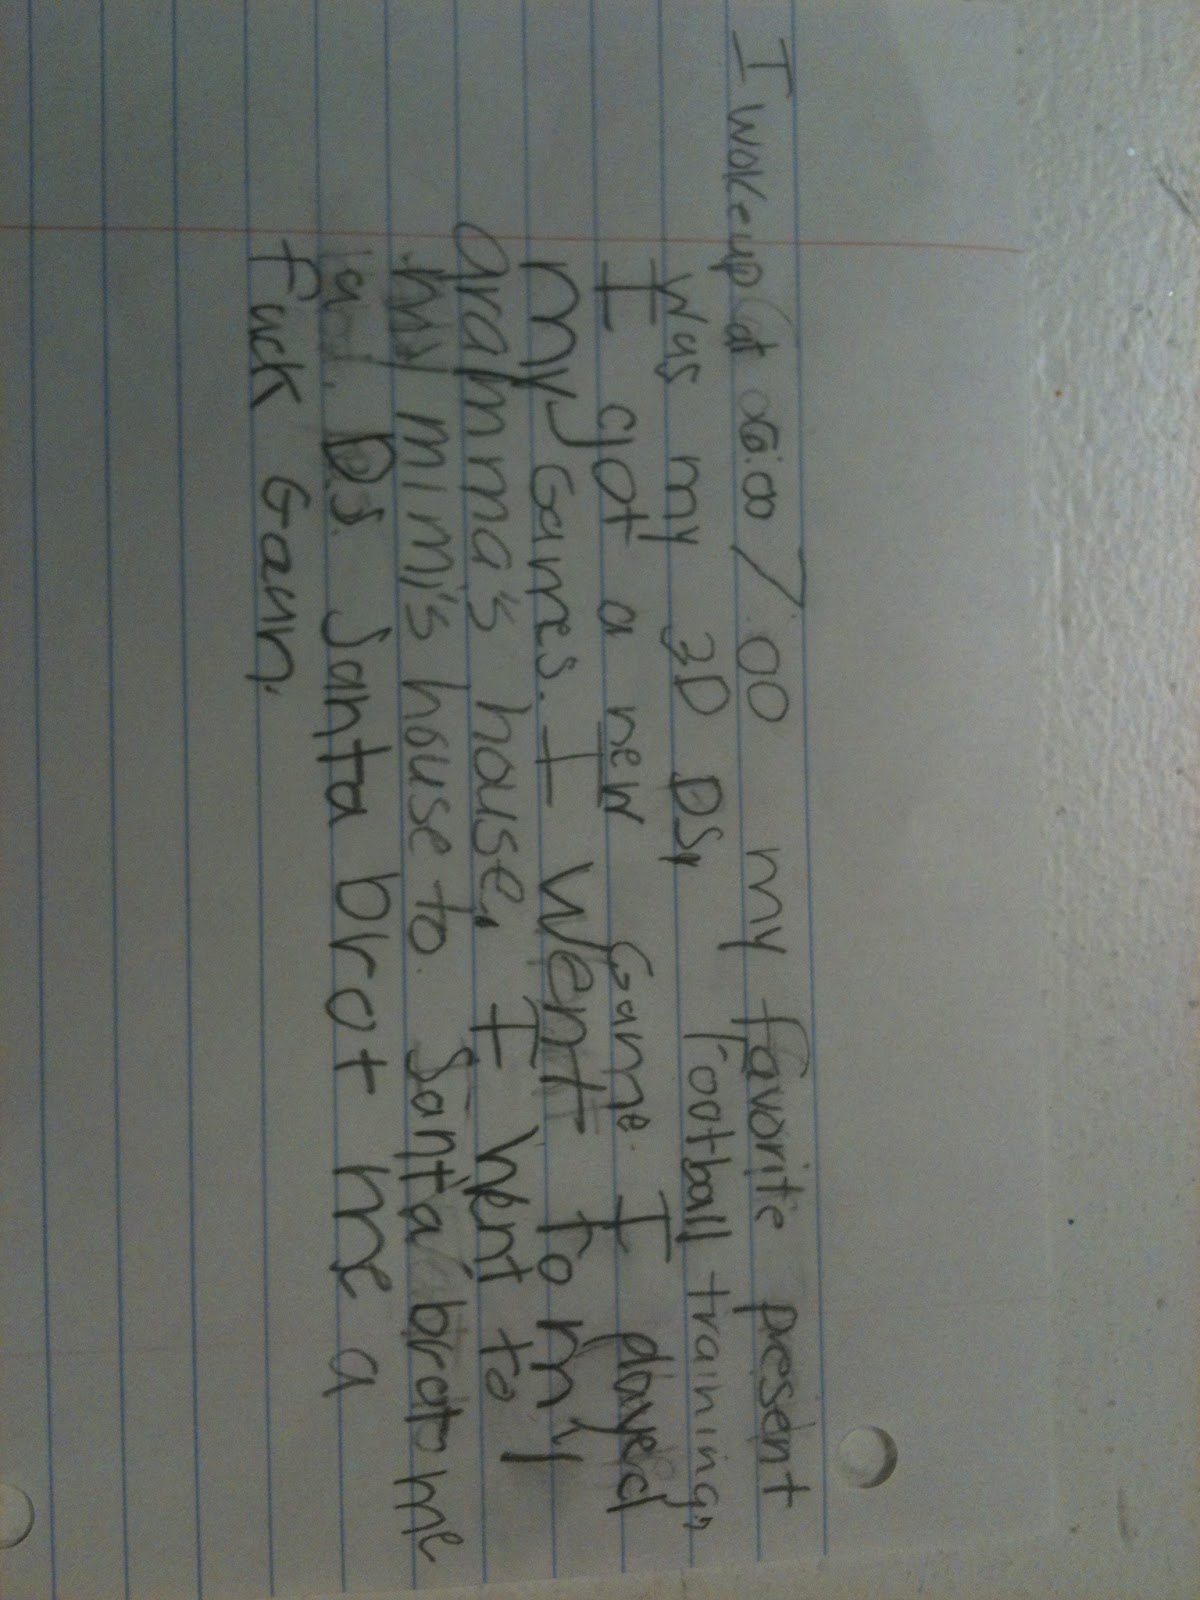 I woke up at 6:00 7:00 my favorite present
was my 3D DS, Football training,
I got a new Game. I played
my Games. I went to my
gramma's house, I went to
my mimi's house to. Santa brot me
a DS Santa brot me a
fuck Gamn.